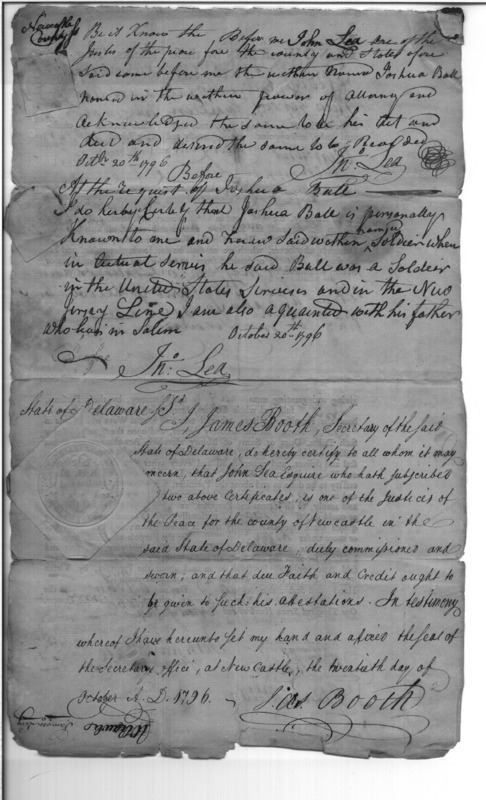 Newcastle Ss
County
Be it Know the Before me John Lea one of the
Justes of the peace fore the county and States afore
Said come before me the within Named Joshua Ball
Named in the within power of Attorny and
Acknowledged the same to be his Act and
deed and desired the same to be Recorded
Octbr 20th 1796 Before
Jno Lea
At the request of Joshua Ball
I do herby Certefy that Joshua Ball is personally
Known to me and knew said within named Soldeir when
in Actual Servis he said Ball was a Soldeir
in the United States Servises and in the New
Jersey Line I am also aquainted with his father
who lives in Salem October 20th 1796
Jno: Lea
State of Delaware Sst. I, James Booth, Secretary of the said
State of Delaware, do hereby certify to all whom it may
concern, that John Lea Esquire who hath subscribed
two above Certificates, is one of the Justices of
the Peace for the county of Newcastle in the
said State of Delaware, duly commissioned and
sworn, and that due Faith and Credit ought to
be given to such his attestations. In testimony
whereof I have hereunto set my hand and affixed the seal of
the Secretary's office, at New Castle, the twentieth day of
October A. D. 1796.
Jas Booth